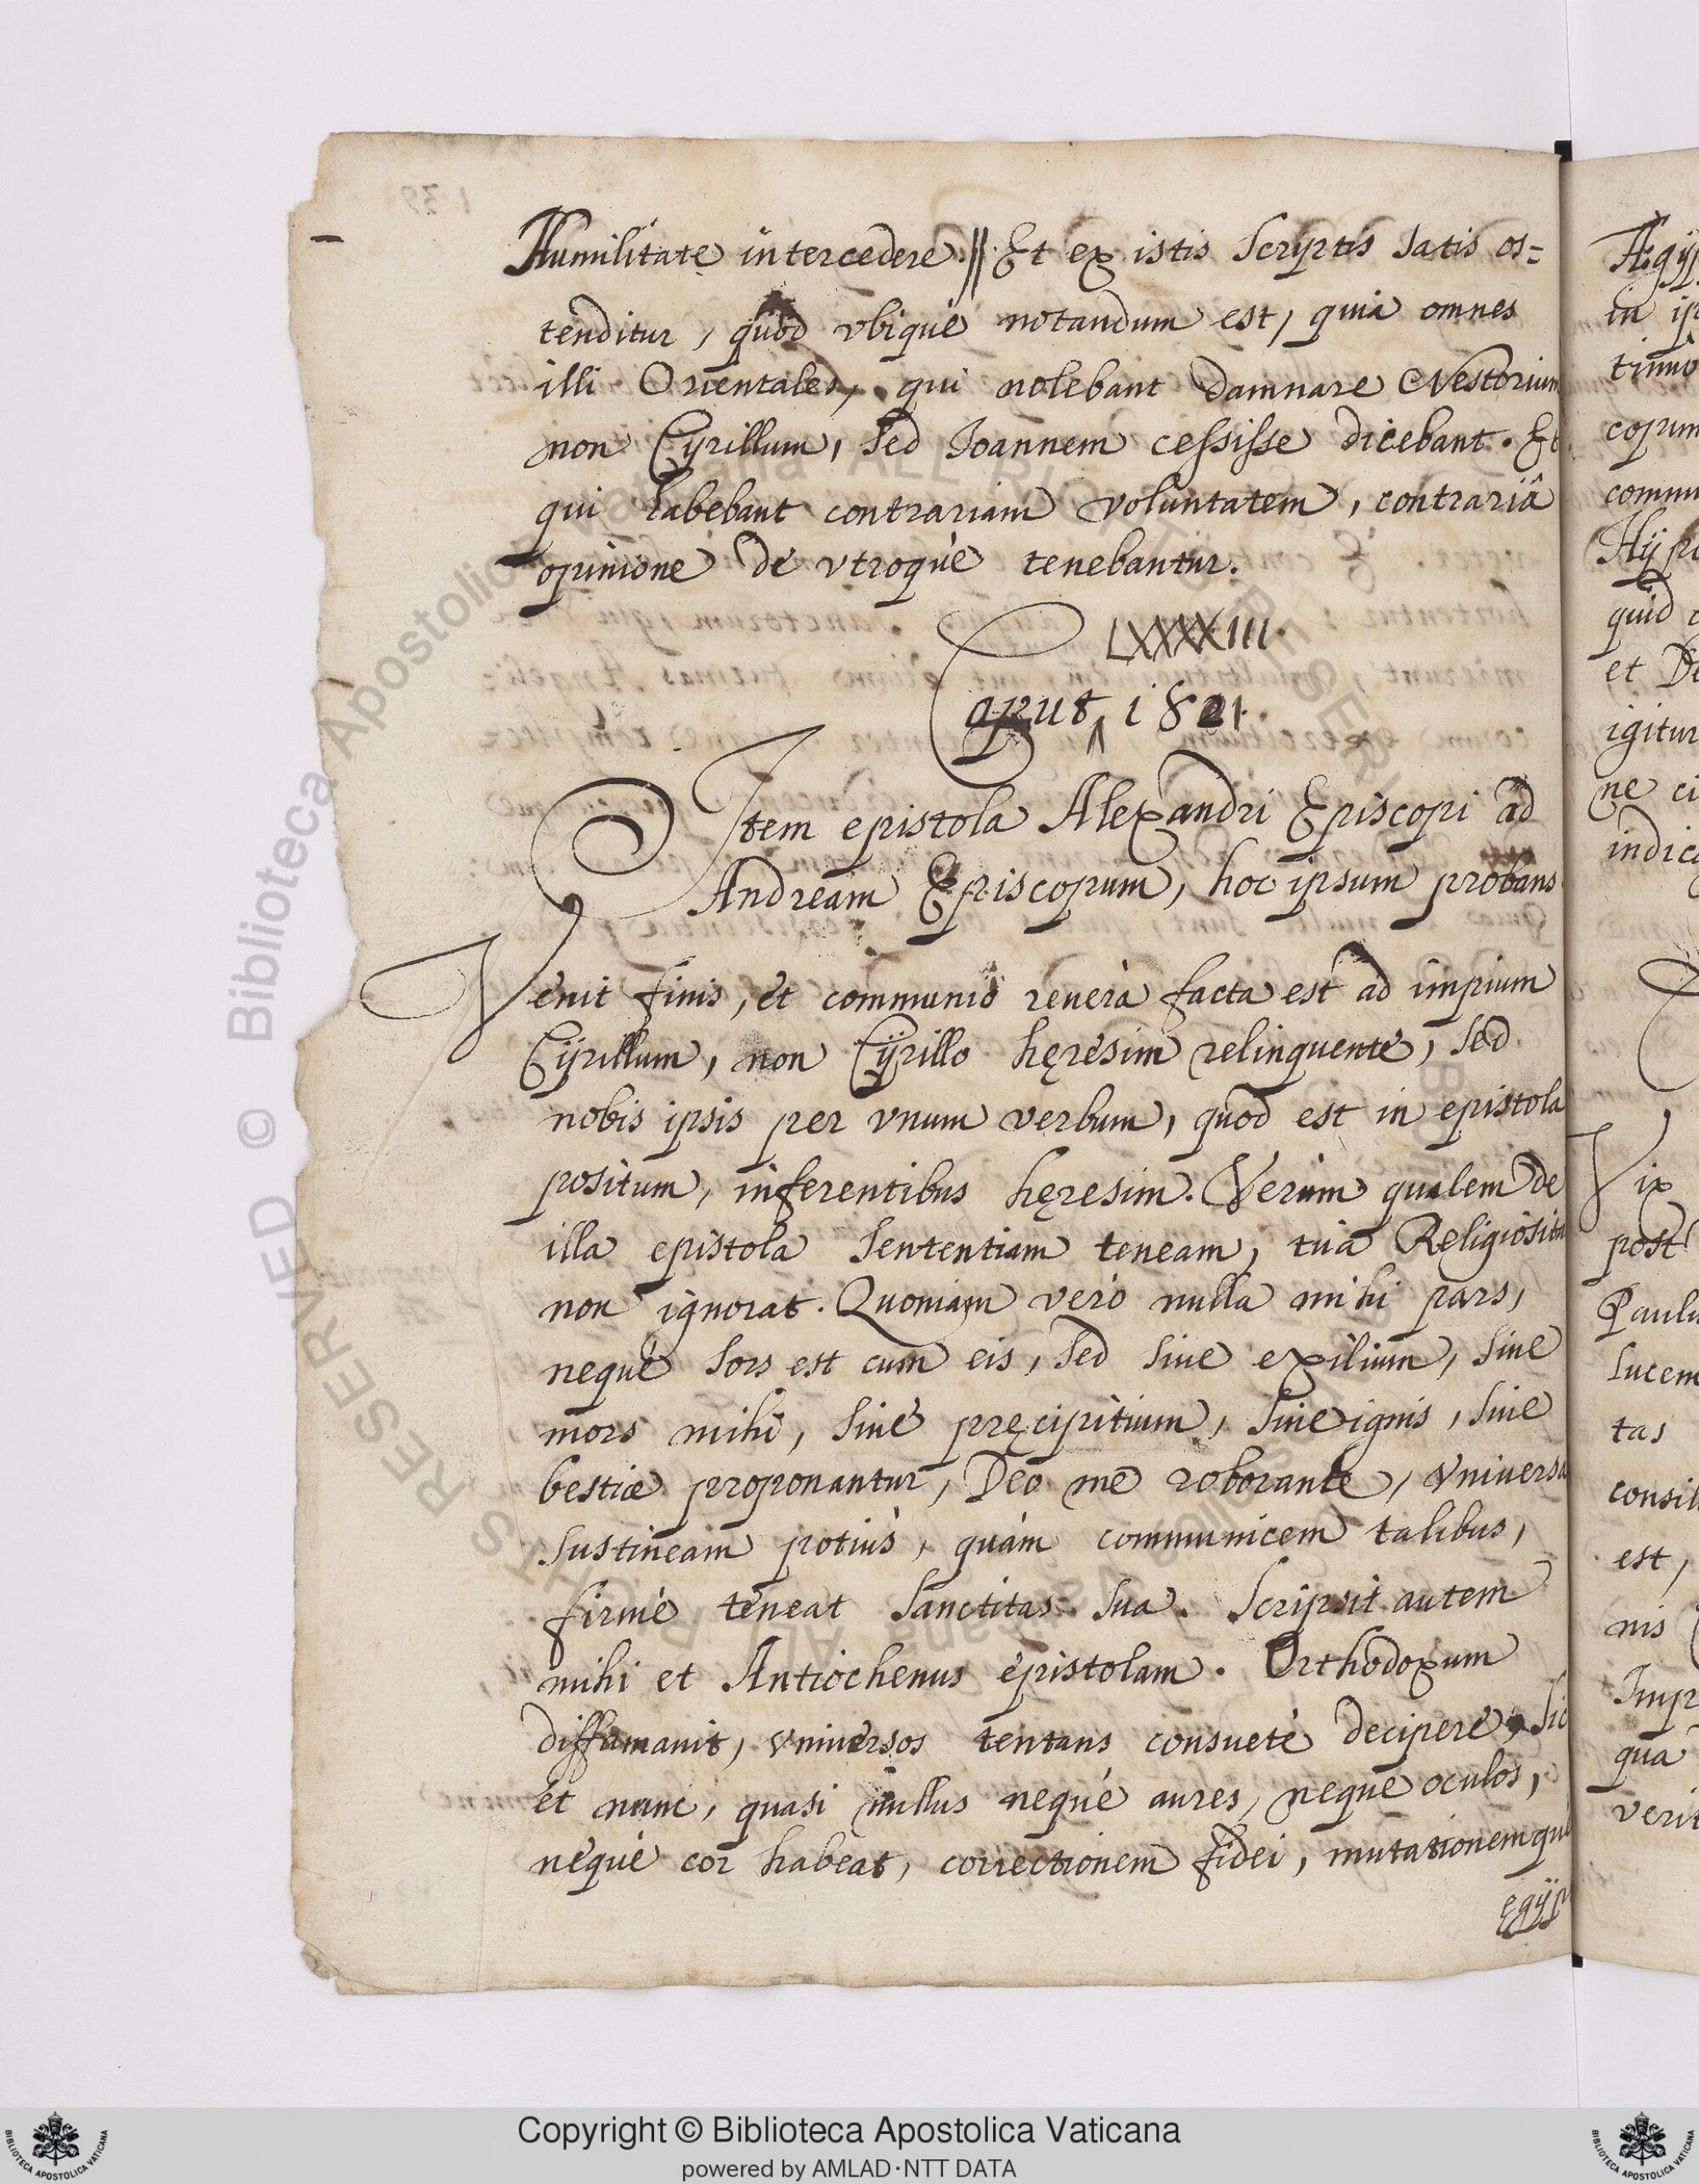 Humilitatę intercedere.|| Et ex istis scriptis satis os=
tenditur, quòd vbique notandum est, quia omnes
illi Orientales, qui nolebant damnare Nestorium
non Cyrillum, sed Joannem cessisse dicebant. Et
qui habebant contrariam voluntatem, contrariâ
opinione de vtroque tenebantur.
LXXXXIII.
Caput 1821.
Item epistola Alexandri Episcopi ad
Andream Episcopum, hoc ipsum probans
Venit finis, et communio reuerà facta est ad impium
Cyrillum, non Cyrillo hęresim relinquente, sed
nobis ipsis per vnum verbum, quod est in epistola
positum, inferentibus hęresim. Verùm qualem de
illa epistola sententiam teneam, tua Religiosita
non ignorat. Quoniam verò nulla mihi pars,
neque sors est cum eis, sed siue exilium, siue
mors mihi, siue pręcipitium, siue ignis, siue
bestiæ proponantur, Deo me roborante, vniversa
sustineam potiùs, quàm communicem talibus,
firmè teneat sanctitas sua. Scripsit autem
mihi et Antiochenus epistolam. Orthodoxum
diffamauit, vniuersos tentans consuetè decipere, sic
et nunc, quasi nullus neque aures, neque oculos,
neque cor habeat, correctionem fidei, mutationemque
ęgyp
Ægyp
in ip
timo
copum
commu
quid
et De
igitur
ne ci
indica
Vix
post
Paulu
lucem
tas
consil
est,
nis
Impr
qua
verit
© Biblioteca Apostolica Vaticana ALL RIGHTS RESERVED
Copyright © Biblioteca Apostolica Vaticana
powered by AMLAD·NTT DATA
BIBLIOTECA APOSTOLICA VATICANA
BIBLIOTECA APOSTOLICA VATICANA